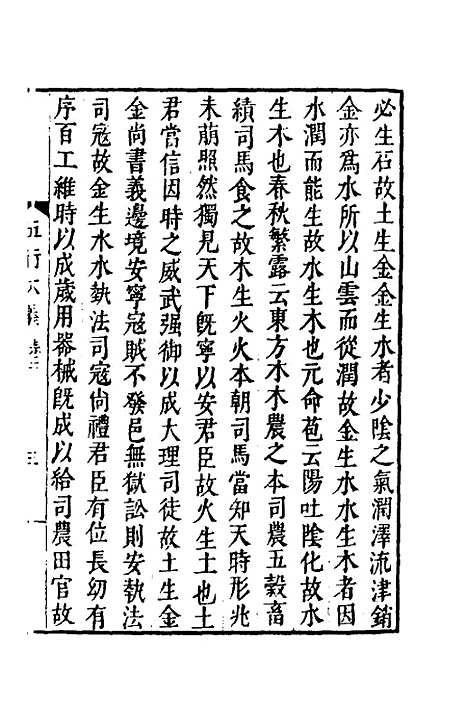 必生石故土生金金生水者少陰之氣潤澤流津銷
金亦爲水所以山雲而從潤故金生水水生木者因
水潤而能生故水生木也元命苞云陽吐陰化故水
生木也春秋繁露云東方木木農之本司農五穀畜
積司馬食之故木生火火本朝司馬當知天時形兆
未萠照然獨見天下旣寧以安君臣故火生土也土
君當信因時之威武强御以成大理司徒故土生金
金尚書義邊境安寧寇賊不發邑無獄訟則安執法
司寇故金生水水執法司寇尚禮君臣有位長幼有
序百工維時以成歲用器械旣成以給司農田官故
五行大義